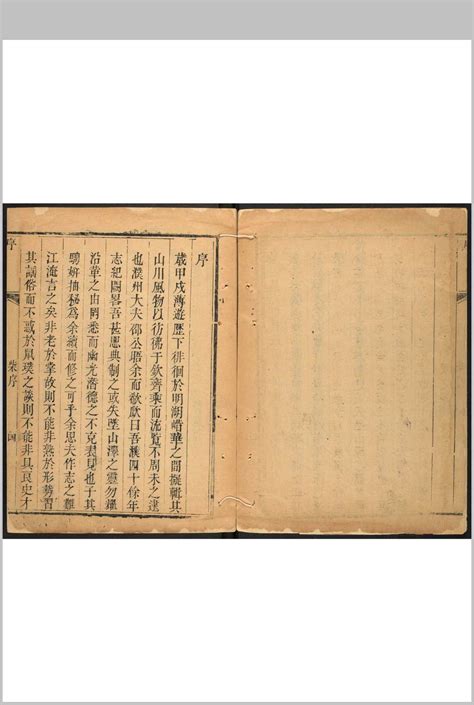 序
歲甲戌薄遊歷下徘徊於明湖嶗華之間擬輯其
山川風物以彷彿于欽齊乘而流覽不周未之逮
也濮州大夫邵公晤余而歎歔曰吾濮四十餘年
志紀闕畧吾甚思典制之或失墜山澤之靈勿耀
沿革之由罔悉而幽光潛德之不克表見也子其
騁妍抽秘為余續而修之可乎余思夫作志之難
江淹言之矣非老於掌故則不能非熟於形勢習
其謠俗而不或於鼠璞之談則不能非具良史才
序
柴序